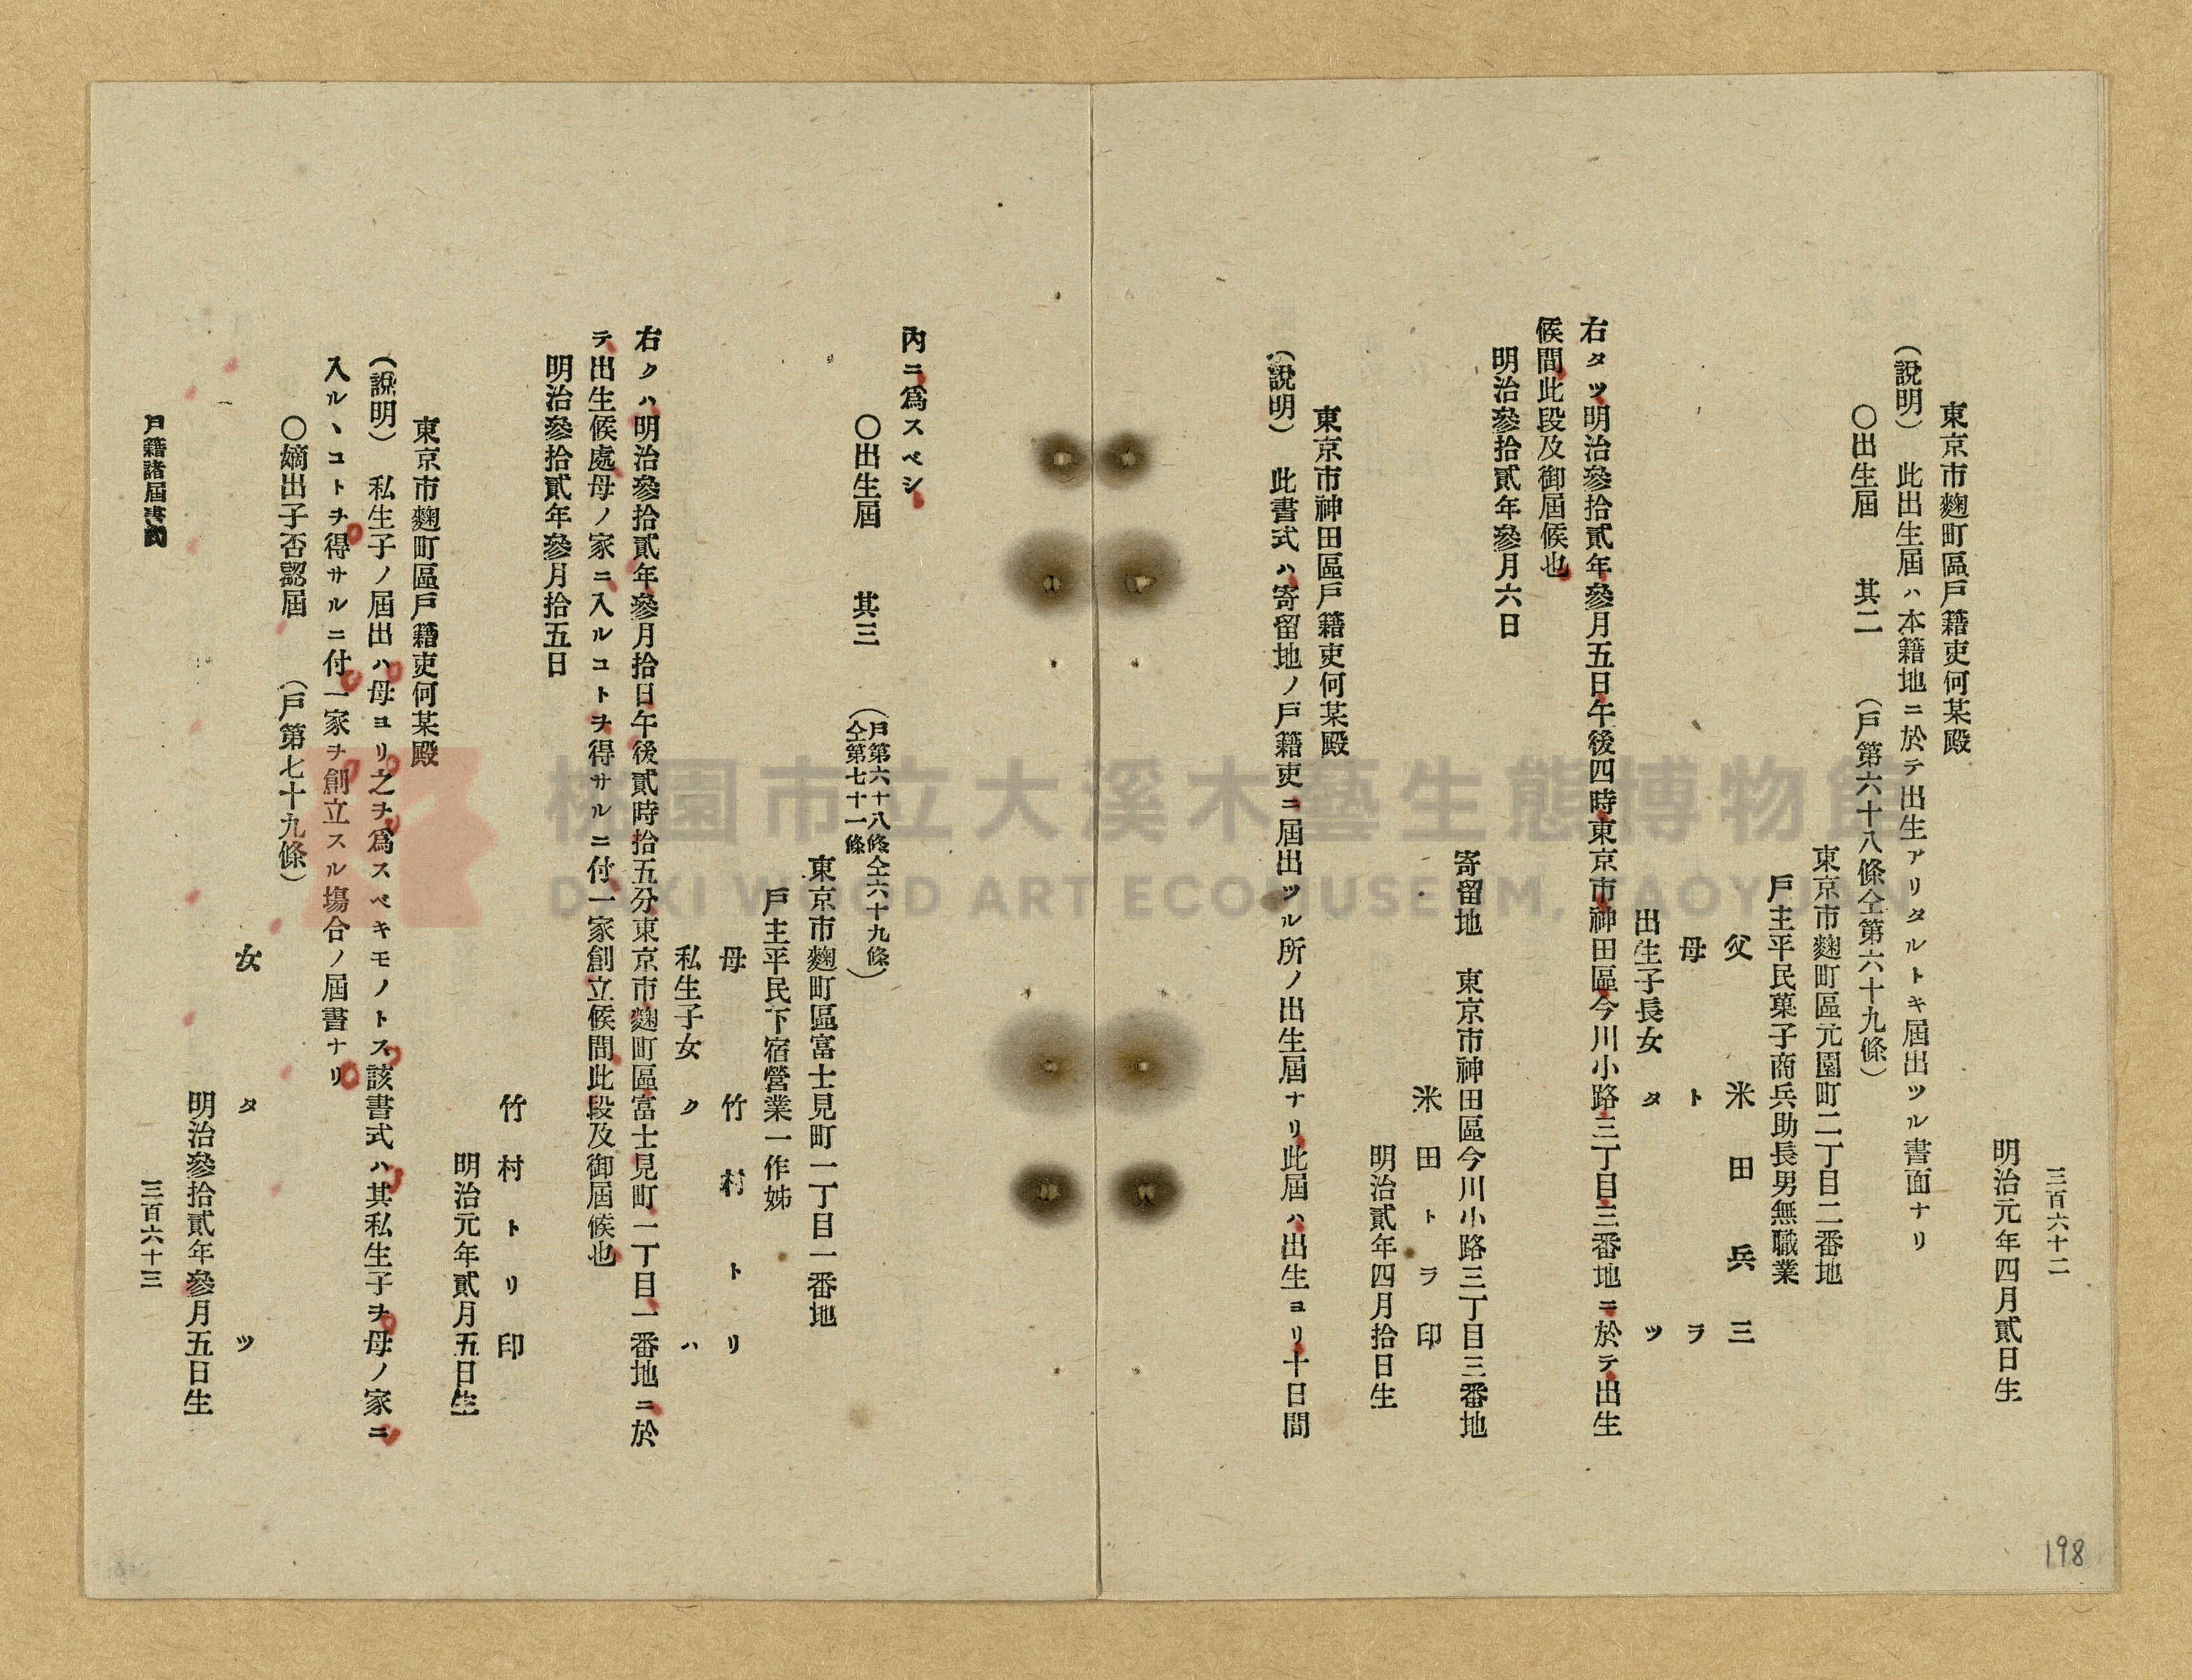 三百六十二
明治元年四月貳日生
東京市麴町區戶籍吏何某殿
(說明) 此出生屆ハ本籍地ニ於テ出生アリタルトキ屆出ツル書面ナリ
〇出生屆 其二 (戶第六十八條仝第六十九條)
東京市麴町區元園町二丁目二番地
戶主平民菓子商兵助長男無職業
父 米田兵三
母 トラ
出生子長女 タツ
右タツ明治參拾貳年參月五日午後四時東京市神田區今川小路三丁目三番地ニ於テ出生
候間此段及御屆候也
明治參拾貳年參月六日
寄留地 東京市神田區今川小路三丁目三番地
米田トラ印
明治貳年四月拾日生
東京市神田區戶籍吏何某殿
(說明) 此書式ハ寄留地ノ戶籍吏ニ屆出ツル所ノ出生屆ナリ此屆ハ出生ヨリ十日間
198
內ニ爲スベシ
〇出生屆 其三 (戶第六十八條仝六十九條
仝第七十一條)
東京市麴町區富士見町一丁目一番地
戶主平民下宿營業一作姊
母 竹村トリ
私生子女 クハ
右クハ明治參拾貳年參月拾日午後貳時拾五分東京市麴町區富士見町一丁目一番地ニ於
テ出生候處母ノ家ニ入ルコトヲ得サルニ付一家創立候間此段及御屆候也
明治參拾貳年參月拾五日
竹村トリ印
明治元年貳月五日生
東京市麴町區戶籍吏何某殿
(說明) 私生子ノ屆出ハ母ヨリ之ヲ爲スベキモノトス該書式ハ其私生子ヲ母ノ家ニ
入ルヽコトヲ得サルニ付一家ヲ創立スル塲合ノ屆書ナリ
〇嫡出子否認屆 (戶第七十九條)
女 タツ
明治參拾貳年參月五日生
戶籍諸屆書式
三百六十三
桃園市立大溪木藝生態博物館
DAXI WOOD ART ECOMUSEUM, TAOYUAN